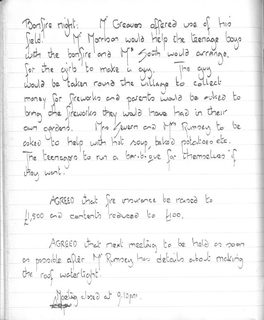 Bonfire night. M Greaves offered use of his
field. M Morrison would help the teenage boys
with the bonfire and Mrs South would arrange
for the girls to make a guy. The guy
would be taken round the village to collect
money for fireworks and parents would be asked to
bring the fireworks they would have had in their
own gardens. Mrs and Mrs Rumsey to be
asked to help with hot soup, baked potatoes etc.
The teenagers to run a barbique for themselves if
they want.
AGREED that fire insurance be raised to
£1,500 and contents reduced to £100.
AGREED that next meeting to be held as soon
as possible after Mr Rumsey has details about making
the roof watertight.
Meeting closed at 9.10pm.